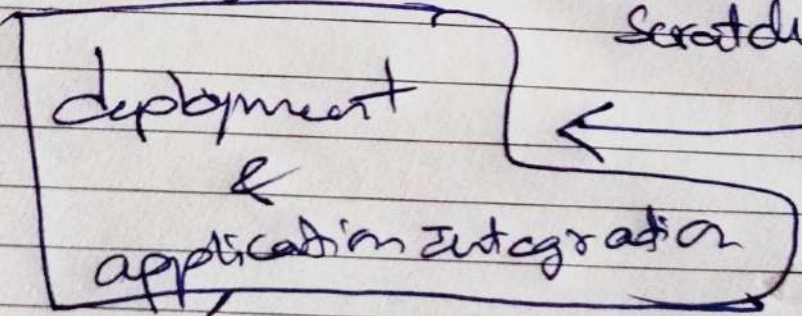 Scratch
deployment
&
application Integration